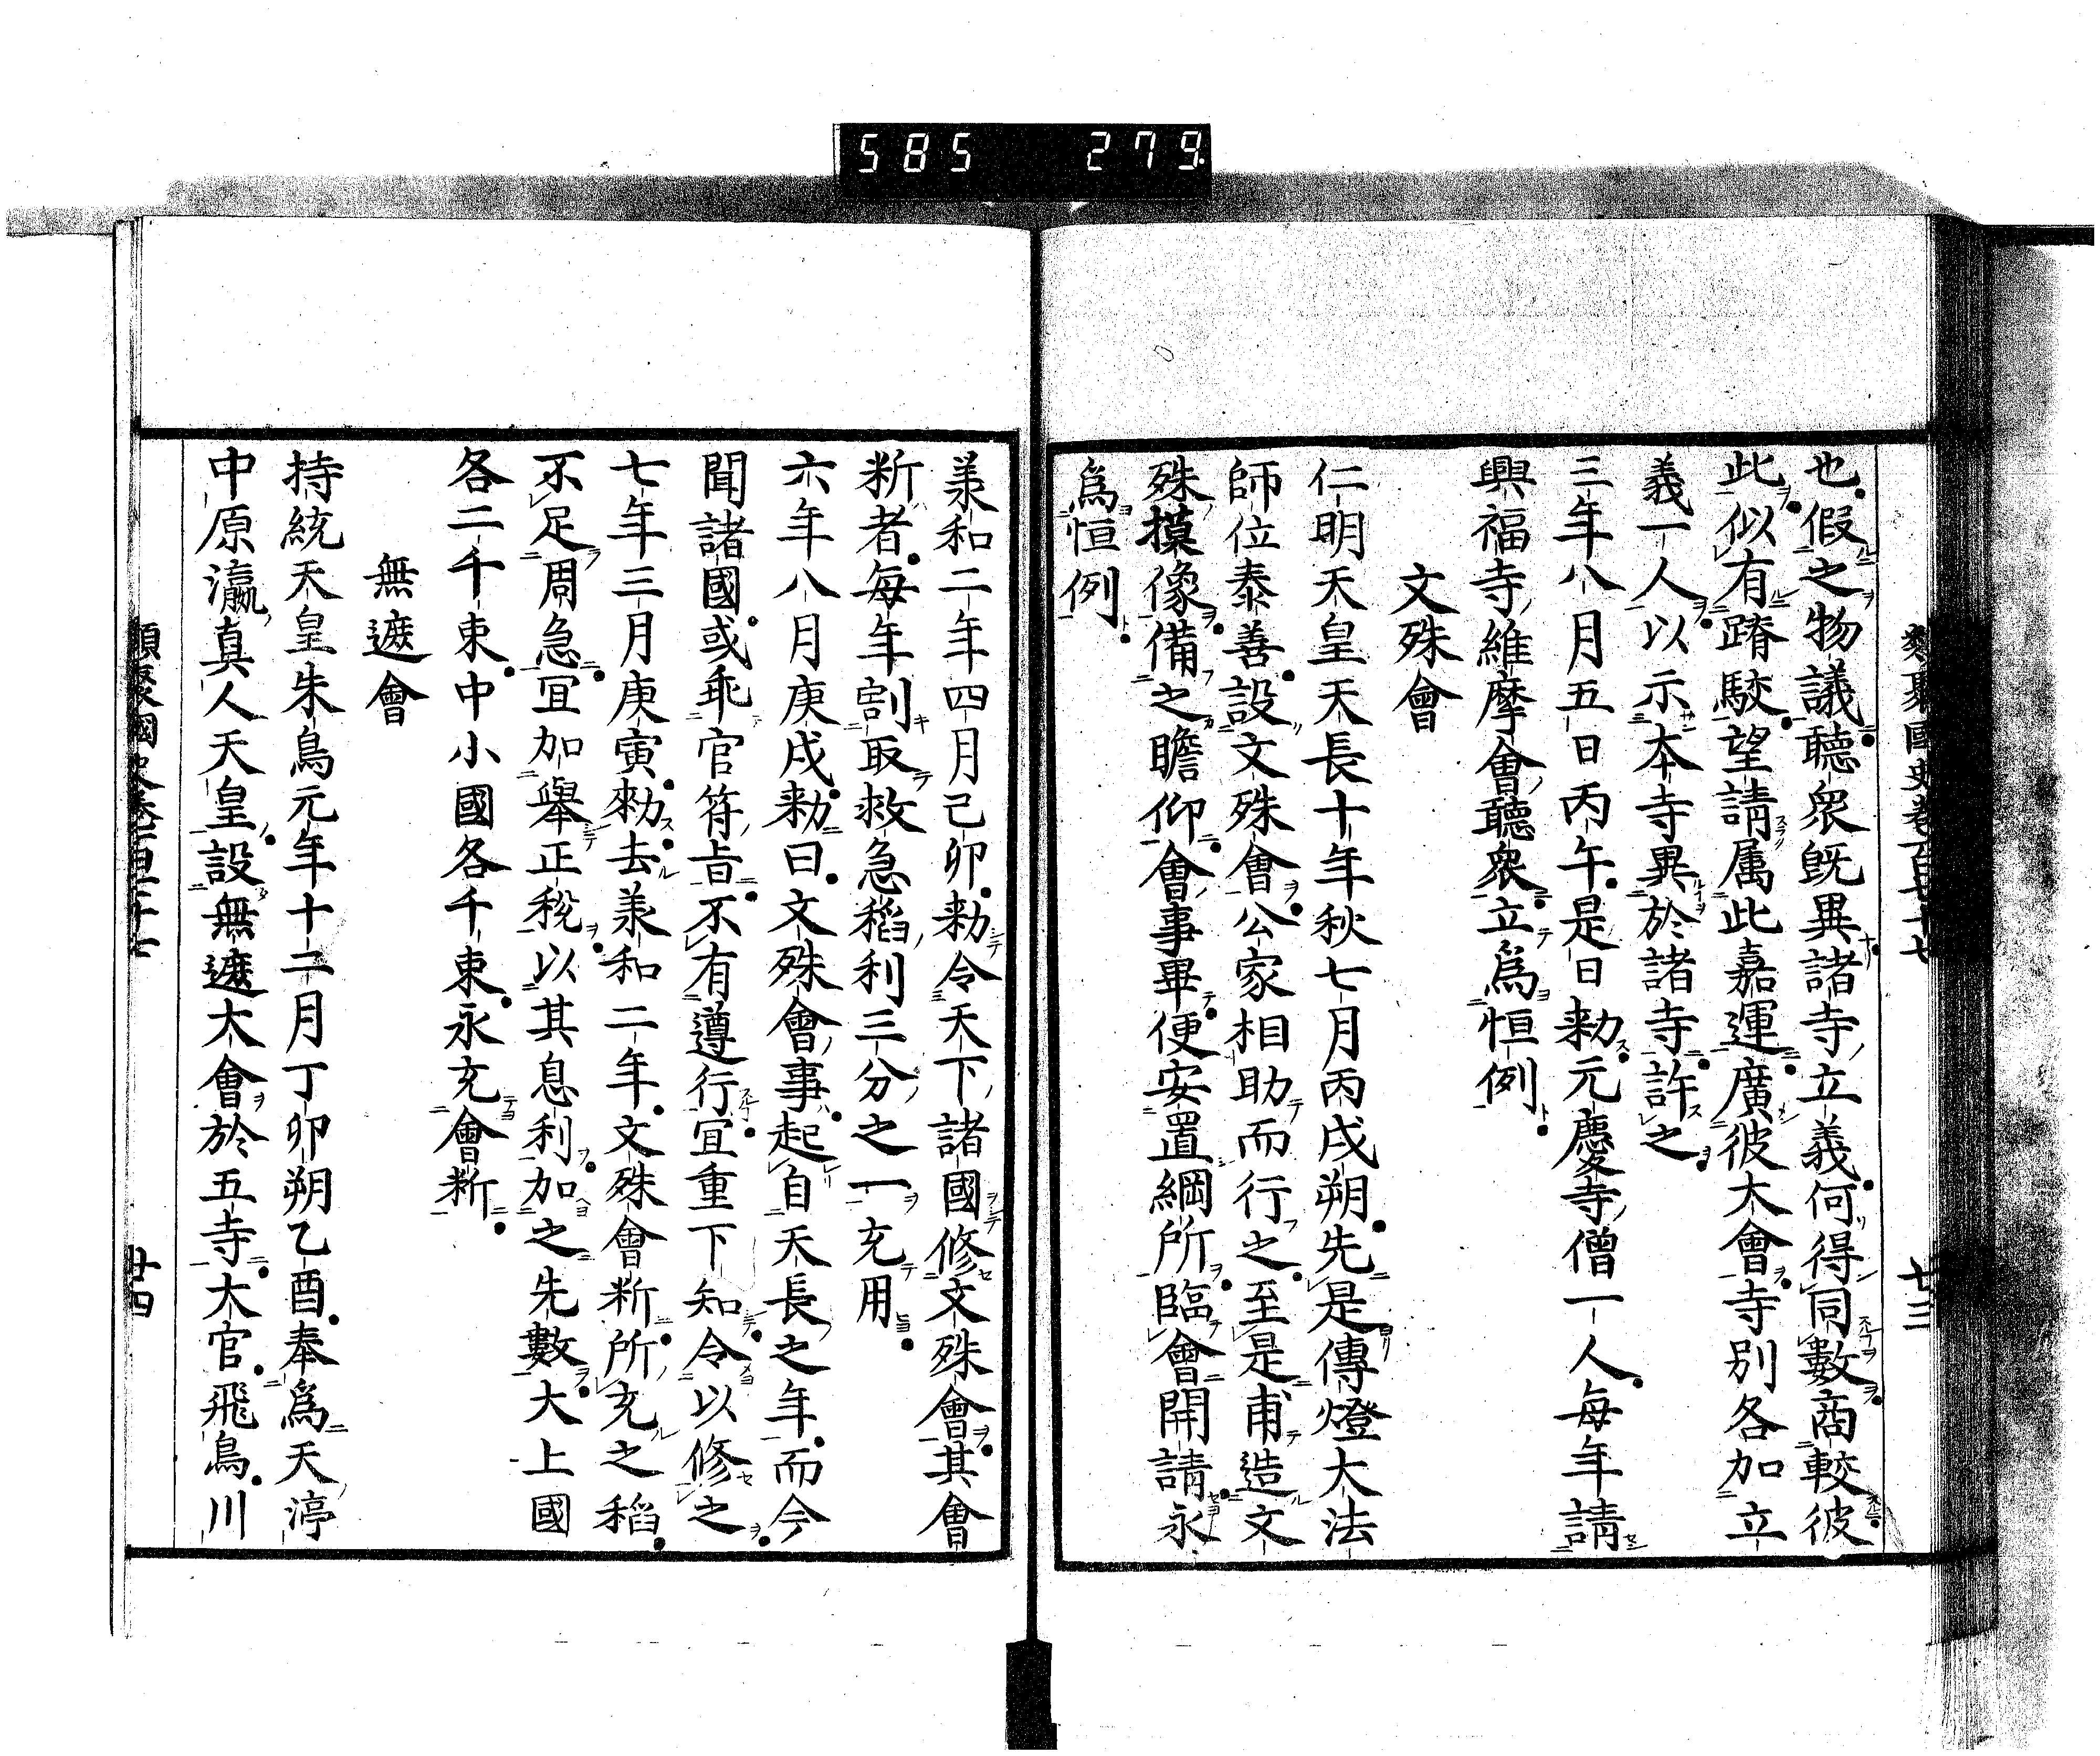 585 279
類聚國史卷百七十七 廿三
也假之物議聽衆既異諸寺立義何得同數商較彼
此似有踳駮望請属此嘉運廣彼大會寺別各加立
義一人以示本寺異於諸寺許之
三年八月五日丙午是日勅元慶寺僧一人每年請
興福寺維摩會聽衆立爲恒例
文殊會
仁明天皇天長十年秋七月丙戌朔先是傳燈大法
師位泰善設文殊會公家相助而行之至是甫造文
殊摸像備之瞻仰會事畢便安置綱所臨會開請永
爲恒例
羕和二年四月己卯勅令天下諸國修文殊會其會
新者每年割取救急稻利三分之一充用
六年八月庚戌勅曰文殊會事起自天長之年而今
聞諸國或乖官符旨不有遵行宜重下知令以修之
七年三月庚寅勅去羕和二年文殊會新所充之稻
不足周急宜加舉正税以其息利加之先數大上國
各二千束中小國各千束永充會新
無遮會
持統天皇朱鳥元年十二月丁卯朔乙酉奉爲天渟
中原瀛真人天皇設無遮大會於五寺大官飛鳥川
類聚國史卷百七十七 廿四